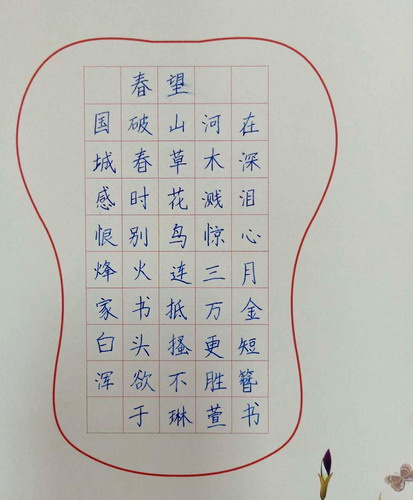 春望
国破山河在
城春草木深
感时花溅泪
恨别鸟惊心
烽火连三月
家书抵万金
白头搔更短
浑欲不胜簪
于琳萱书